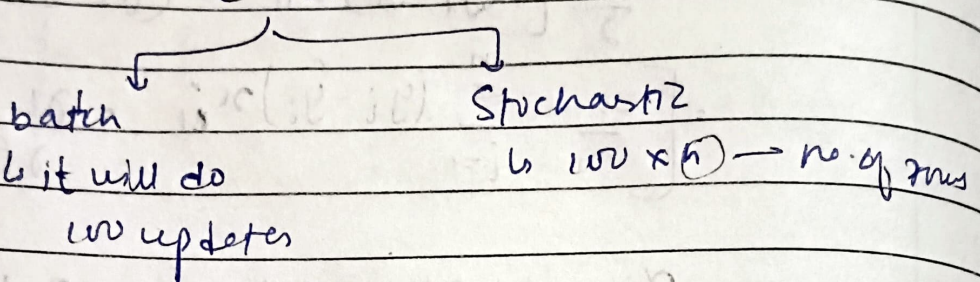 batch
↳ it will do
100 updates
Stochastic
↳ 100 × n → no. of rows